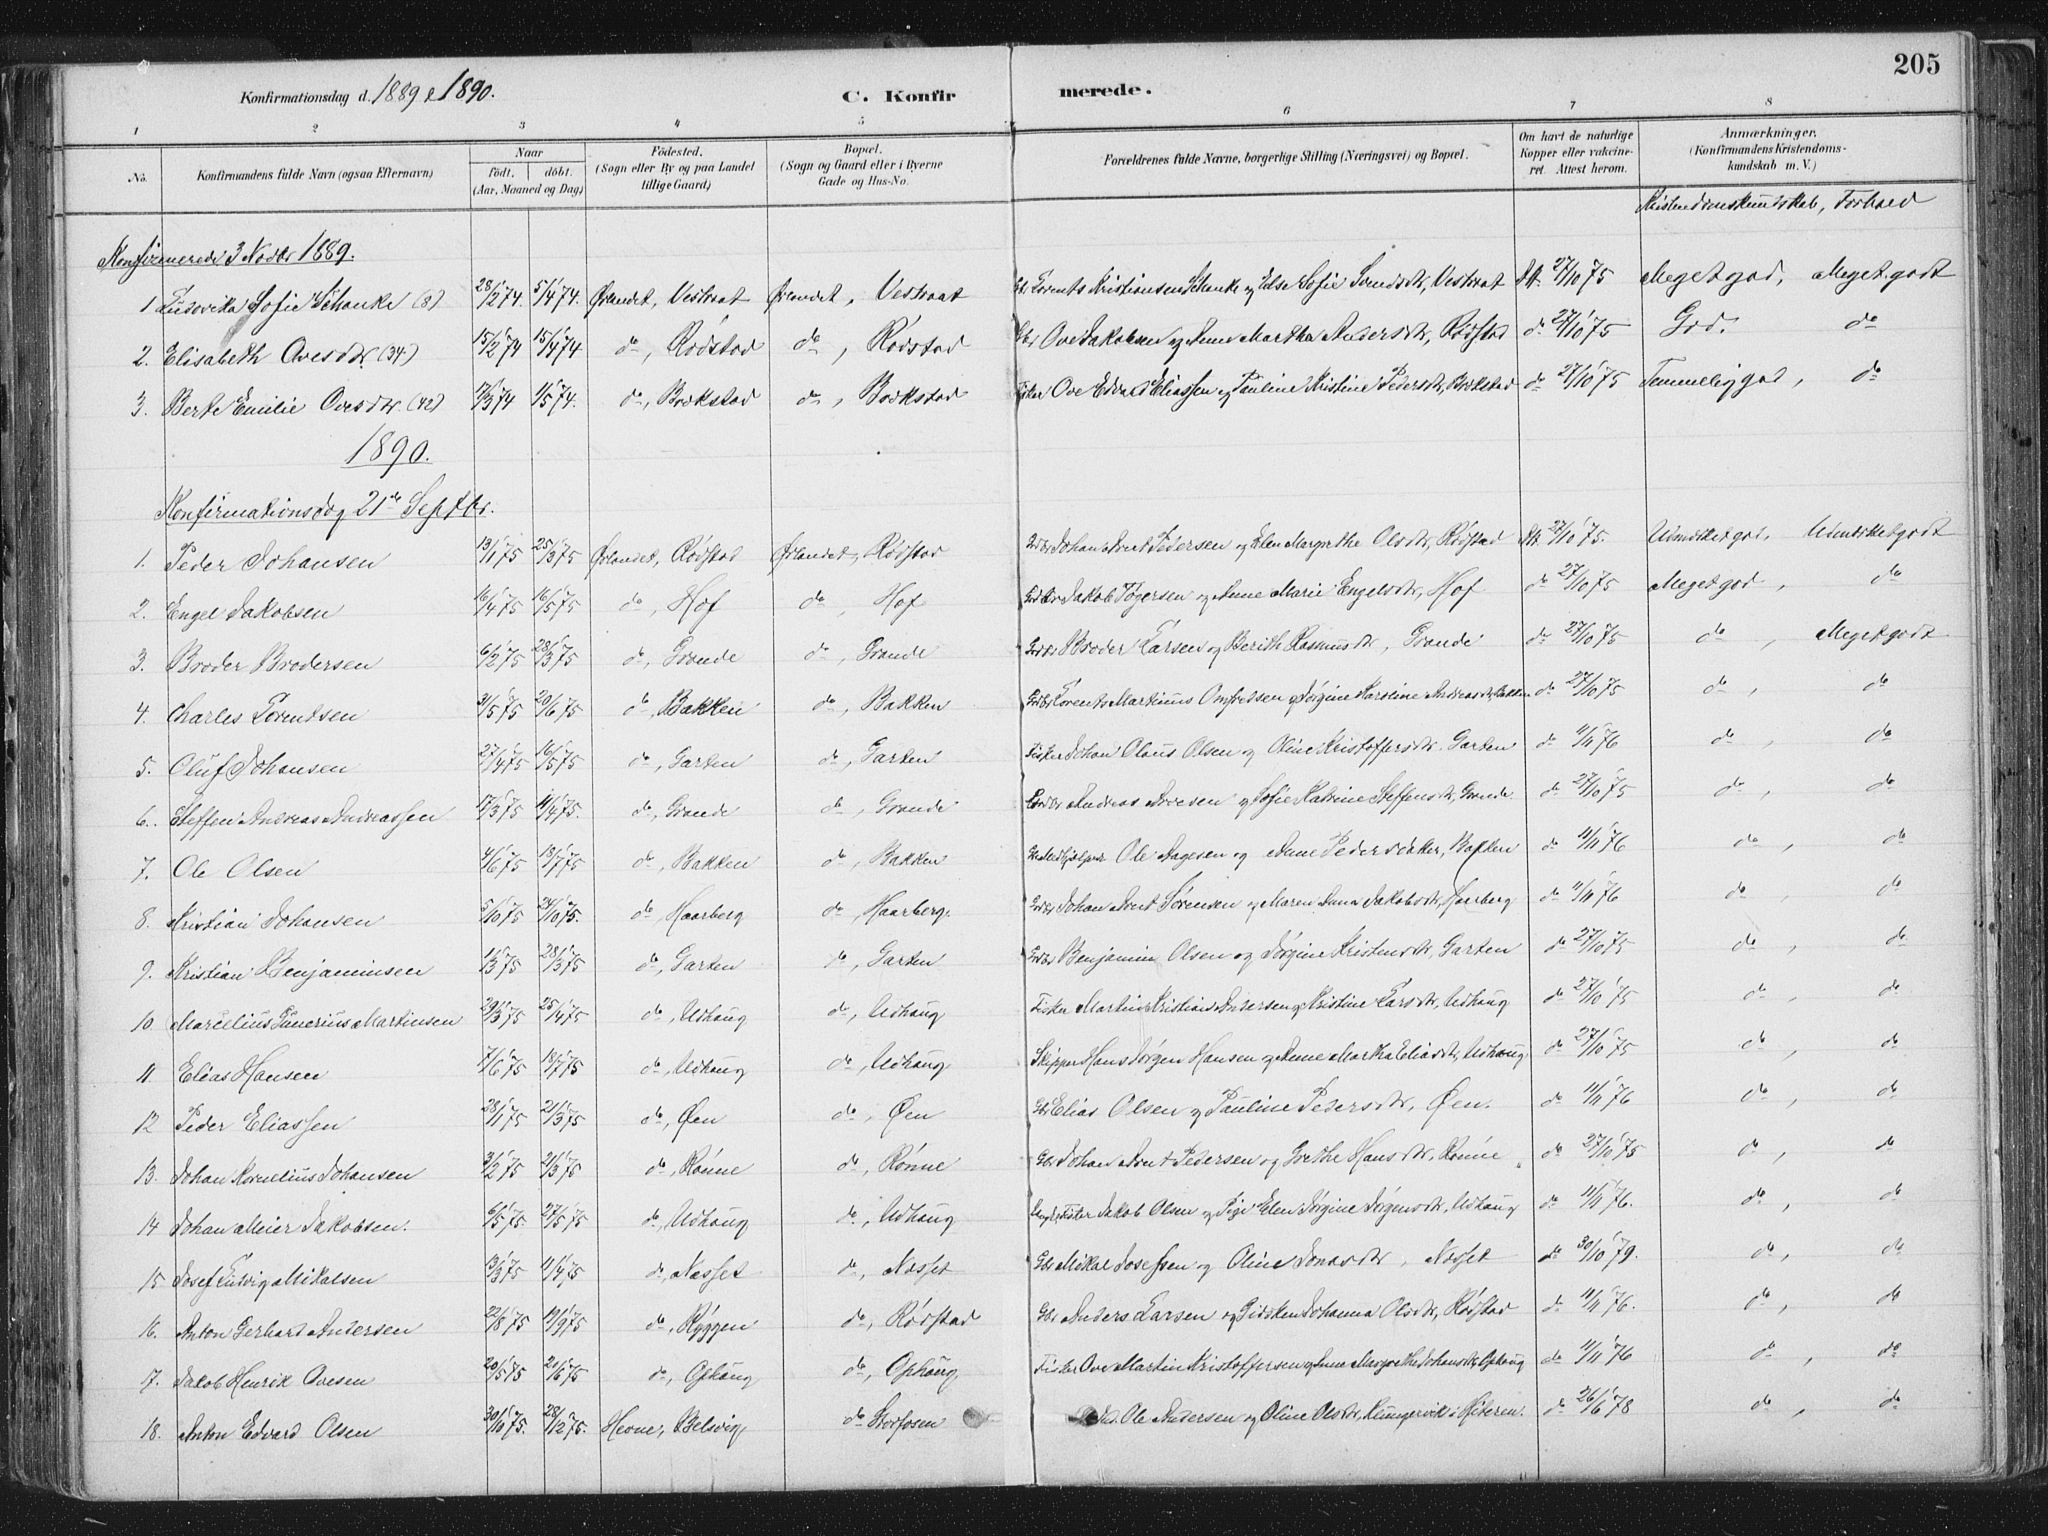 205
Konfirmationsdag d. 1889 & 1890. C. Konfirmerede.
1 2 3 4 5 6 7 8
No. Konfirmandens fulde Navn (ogsaa Efternavn) Naar født. døbt. (Aar, Maaned og Dag) Fødested. (Sogn eller By og paa Landet tillige Gaard) Bopæl. (Sogn og Gaard eller i Byerne Gade og Hus-No. Forældrenes fulde Navne, borgerlige Stilling (Næringsvei) og Bopæl. Om havt de naturlige Kopper eller vakcineret. Attest herom. Anmærkninger. (Konfirmandens Kristendomskundskab m. V.)
Kristendomskundskab, Forhold
Konfirmerede 3 Novbr 1889.
1 Ludovika Sofie Schanke (8) 28/2 74. 5/4 74. Ørlandet, Vestraat Ørlandet, Vestraat Lorents Kristiansen Schanke og Edse Sofie Svendsdtr, Vestraat Att. 27/10 75 Meget god, Meget godt
2. Elisabeth Ovesdtr. (34) 15/2 74 15/4 74 do, Rødstad do, Rødstad Ove Jakobsen og Anne Martha Andersdtr, Rødstad do 27/10 75 God. do
3. Berte Emilie Ovesdtr. (42) 17/3 74 1/5 74. do, Brekstad do, Brekstad Fisker Ove Edvard Eliassen og Pauline Kristine Pedersdtr, Brekstad do 27/10 75 Temmelig god, do
1890.
Konfirmationsdag 21de Septbr.
1. Peder Johansen 13/1 75 25/3 75 Ørlandet, Rødstad Ørlandet, Rødstad Johan Arnt Pedersen og Elen Margrethe Olsdtr, Rødstad Att. 27/10 75. Udmerket god, Udmerket godt
2. Engel Jakobsen 16/4 75 16/5 75 do, Hof do, Hof Jakob Tøgersen og Anne Marie Engelsdtr, Hof do 27/10 75 Meget god, do
3. Broder Brodersen 6/2 75 28/3 75 do, Grande do, Grande Broder Larsen og Berith Rasmusdtr, Grande do 27/10 75 do, Meget godt
4. Charles Lorentsen 31/5 75 20/6 75 do, Bakken do, Bakken Lorents Martinus og Jørgine Karoline Andreasdtr, Bakken do 27/10 75 do, do
5. Oluf Johansen 27/4 75 16/5 75 do, Garten do, Garten Fisker Johan Olaus Olsen og Oline Kristoffersdtr. Garten do 11/11 76 do, do
6. Steffen Andreas Andreassen 17/3 75 11/4 75. do, Grande do, Grande Andreas Arvesen og Sofie Katrine Steffensdtr, Grande do 27/10 75 do, do
7. Ole Olsen 4/6 75 18/7 75 do, Bakken do, Bakken Ole Aagesen og Anne Pedersdatter, Bakken do 11/11 76 do, do
8. Kristian Johansen 5/10 75 24/10 75. do, Haarberg do, Haarberg. Johan Arnt Sørensen og Maren Anna Jakobsdtr, Haarberg do 11/11 76 do, do
9. Kristian Benjaminsen 1/3 75 28/3 75 do, Garten do, Garten Benjamin Olsen og Jørgine Kristensdtr, Garten do 27/10 75 do, do
10. Marcelius Gunerius Martinsen 29/3 75 25/4 75 do, Udhaug do, Udhaug Fisker Martin Kristian Andersen og Kristine Larsdtr, Udhaug do 27/10 75 do, do
11. Elias Hansen 7/6 75 18/7 75 do, Udhaug do, Udhaug Skipper Hans Jørgen Hansen og Anne Martha Eliasdtr, Udhaug do 27/10 75 do, do
12 Peder Eliassen 28/1 75 21/3 75 do, Øen do, Øen Elias Olsen og Pauline Pedersdtr, Øen. do 11/11 76 do, do
13. Johan Kornelius Johansen 3/2 75 21/3 75 do, Rønne do, Rønne Johan Arnt Pedersen og Grethe Hansdtr, Rønne do 27/10 75 do, do
14 Johan Meier Jakobsen. 6/5 75 27/5 75 do, Udhaug do, Udhaug Jakob Olsen og Pige Elen Jørgine Jørgensdtr, Udhaug do 11/11 76. do, do
15 Josef Ludvig Mikalsen 13/3 75 11/4 75 do, Næsset do, Næsset Mikal Josefsen og Oline Jonasdtr, Næsset do 30/10 79. do, do
16. Anton Gerhard Andersen 22/8 75 19/9 75 do, Ryggen do, Rødstad Anders Larsen og Gidsken Johanna Olsdtr, Rødstad do 11/11 76. do, do
7. Jakob Henrik Ovesen 20/5 75 20/6 75 do, Ophaug do, Ophaug Fisker Ove Martin Kristoffersen og Anne Margrethe Johansdtr, Ophaug do 11/11 76 do, do
18. Anton Edvard Olsen 30/10 75. 28/12 75. Hevne, Belsvig do Storfosen Ole Andersen og Oline Olsdtr, Kungervik i Hiteren. do 26/6 78 do, do